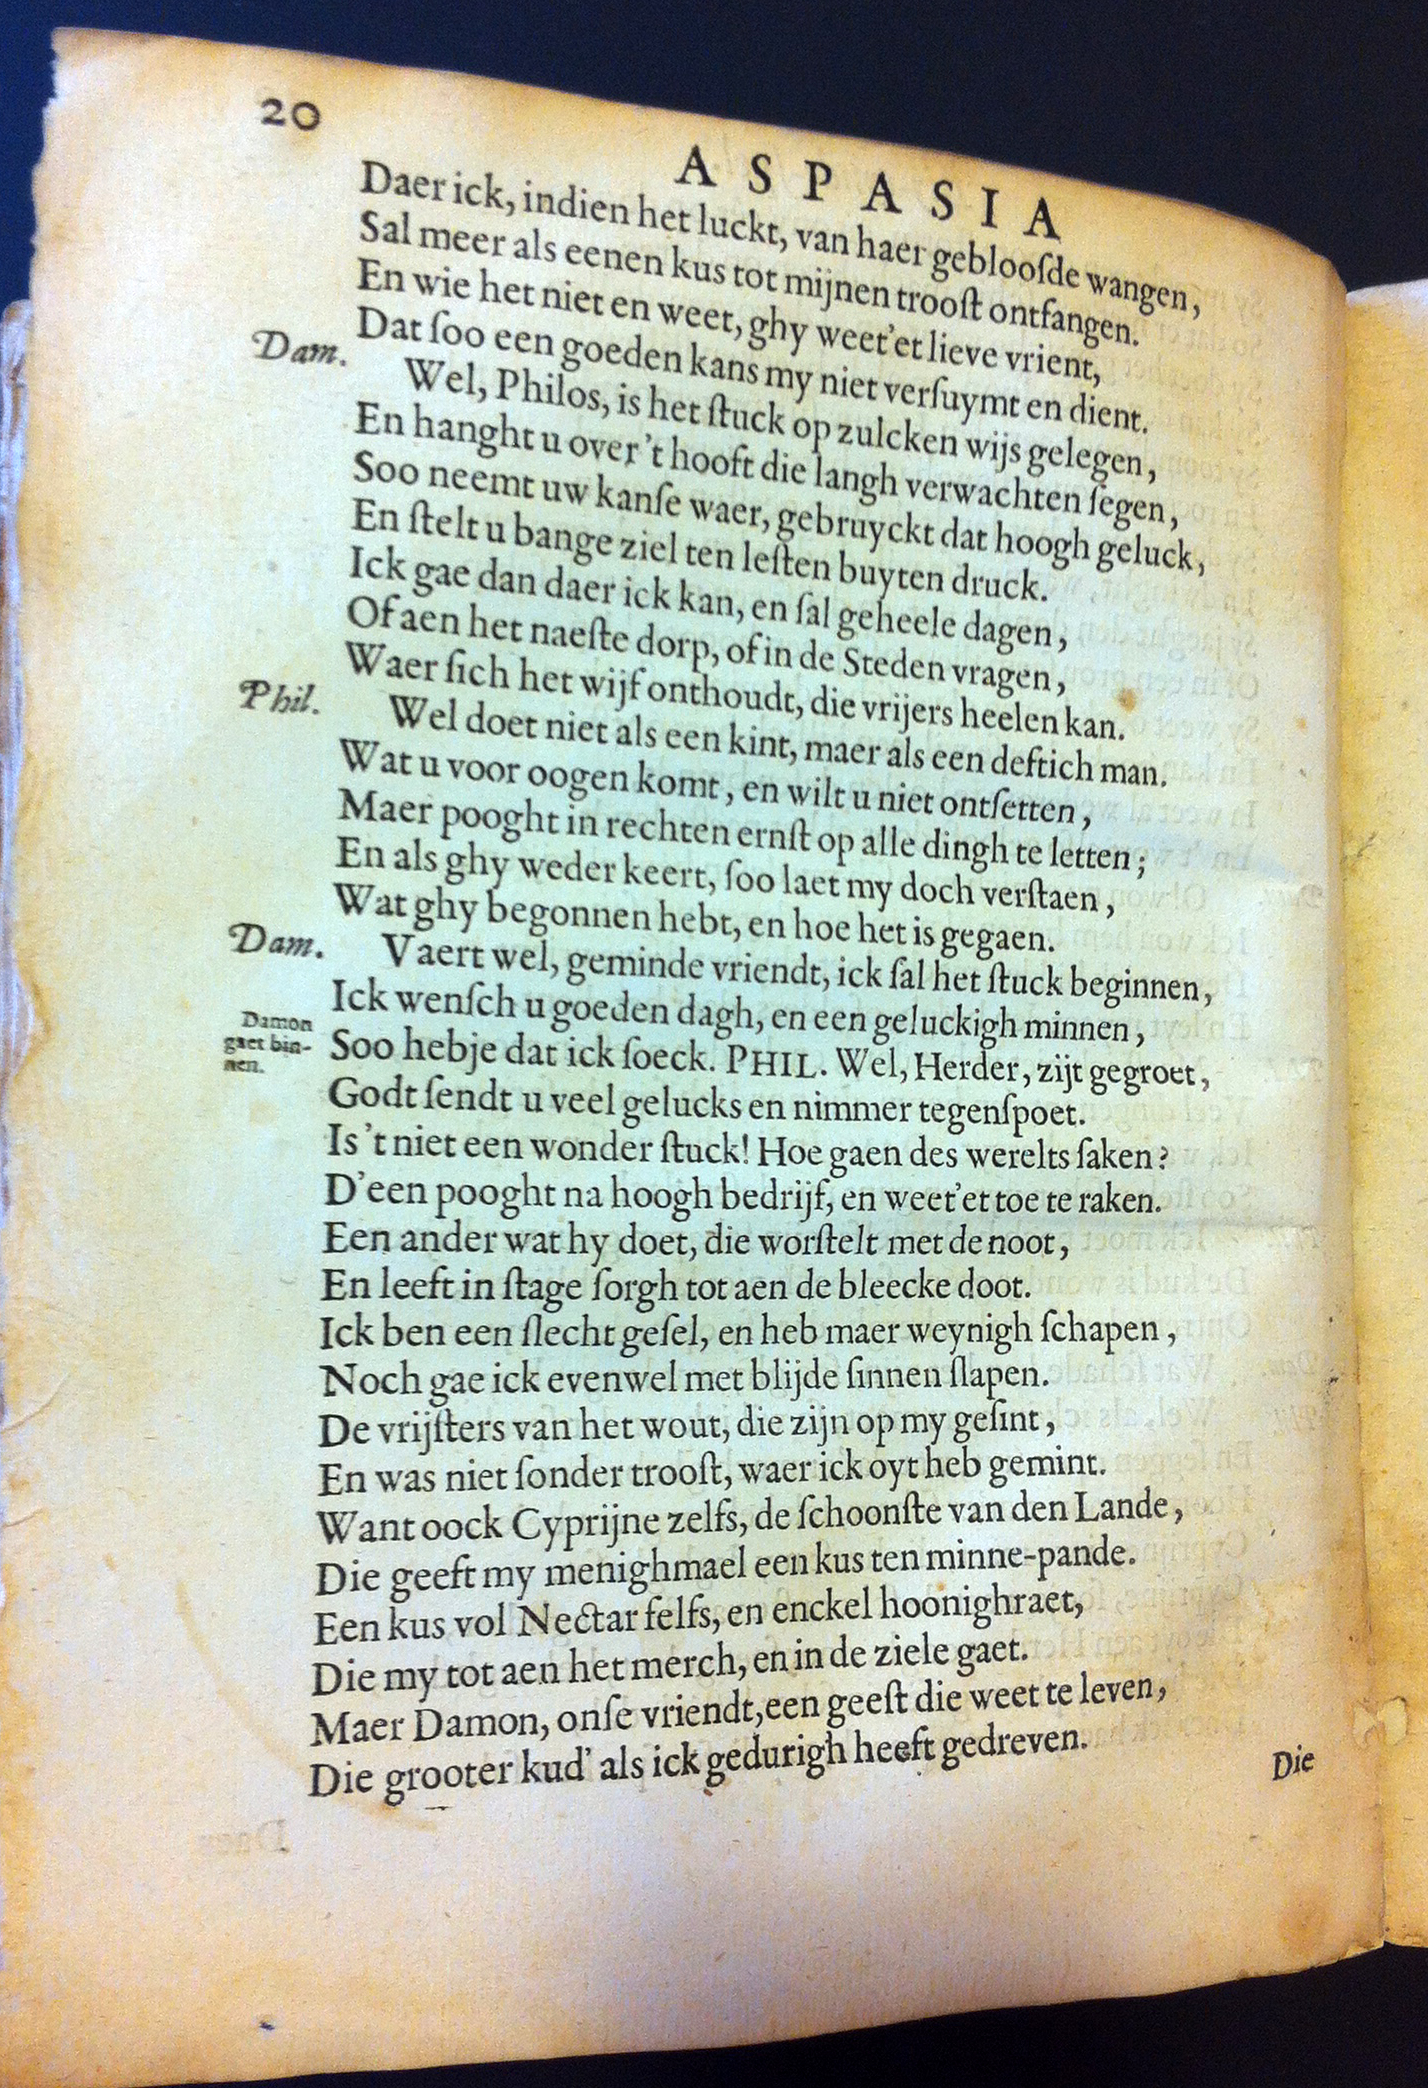 20
ASPASIA
Daer ick, indien het luckt, van haer geblooſde wangen,
Sal meer als eenen kus tot mijnen trooſt ontfangen.
En wie het niet en weet, ghy weet'et lieve vrient,
Dat ſoo een goeden kans my niet verſuymt en dient.
Dam. Wel, Philos, is het ſtuck op zulcken wijs gelegen,
En hanght u over 't hooft die langh verwachten ſegen,
Soo neemt uw kanſe waer, gebruyckt dat hoogh geluck,
En ſtelt u bange ziel ten leſten buyten druck.
Ick gae dan daer ick kan, en ſal geheele dagen,
Of aen het naeſte dorp, of in de Steden vragen,
Waer ſich het wijf onthoudt, die vrijers heelen kan.
Phil. Wel doet niet als een kint, maer als een deftich man.
Wat u voor oogen komt, en wilt u niet ontſetten,
Maer pooght in rechten ernſt op alle dingh te letten;
En als ghy weder keert, ſoo laet my doch verſtaen,
Wat ghy begonnen hebt, en hoe het is gegaen.
Dam. Vaert wel, geminde vriendt, ick ſal het ſtuck beginnen,
Ick wenſch u goeden dagh, en een geluckigh minnen,
Damon
gaet bin-
nen.
Soo hebje dat ick ſoeck. PHIL. Wel, Herder, zijt gegroet,
Godt ſendt u veel gelucks en nimmer tegenſpoet.
Is 't niet een wonder ſtuck! Hoe gaen des werelts ſaken?
D'een pooght na hoogh bedrijf, en weet'et toe te raken.
Een ander wat hy doet, die worſtelt met de noot,
En leeft in ſtage ſorgh tot aen de bleecke doot.
Ick ben een ſlecht geſel, en heb maer weynigh ſchapen,
Noch gae ick evenwel met blijde ſinnen ſlapen.
De vrijſters van het wout, die zijn op my geſint,
En was niet ſonder trooſt, waer ick oyt heb gemint.
Want oock Cyprijne zelfs, de ſchoonſte van den Lande,
Die geeft my menighmael een kus ten minne-pande.
Een kus vol Nectar ſelfs, en enckel hoonighraet,
Die my tot aen het merch, en in de ziele gaet.
Maer Damon, onſe vriendt, een geeſt die weet te leven,
Die grooter kud' als ick gedurigh heeft gedreven.
Die